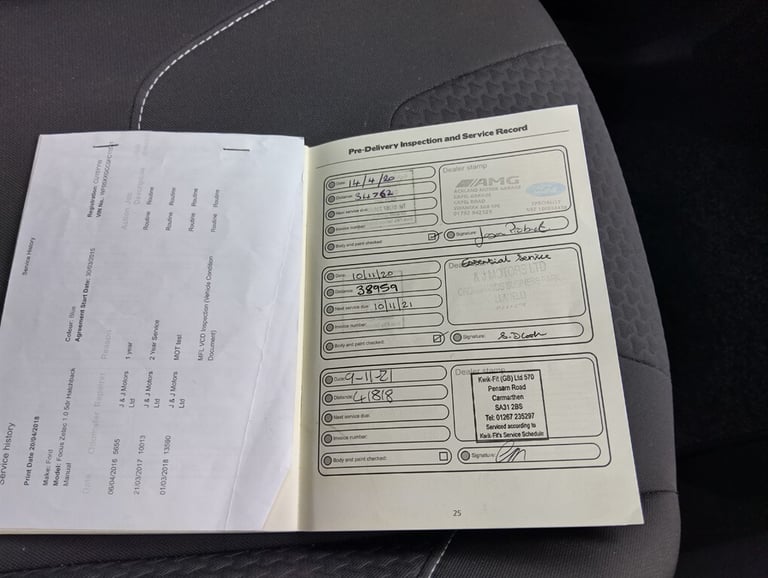 Service history
Print Date 20/04/2018
Service History
Make: Ford
Model: Focus Zetec 1.0 5dr Hatchback
Manual
Colour: Blue
Agreement Start Date: 30/03/2015
Registration
VIN No.
Date Odometer Repairer Reason
06/04/2016 5655 J & J Motors Ltd 1 year Routine Routine
21/03/2017 10013 J & J Motors Ltd 2 Year Service Routine Routine
01/03/2018 13590 J & J Motors Ltd MOT test Routine Routine
MFL VCD Inspection (Vehicle Condition Document) Routine Routine
Pre-Delivery Inspection and Service Record
Date: 14/4/20
Distance: 34762
Next service due:
Invoice number:
Body and paint checked:
Dealer stamp
AMG
Ford
Signature:
Date: 10/11/20
Distance: 38959
Next service due: 10/11/21
Invoice number:
Body and paint checked:
Essential Service
J MOTORS LTD
Signature:
Date: 9-11-21
Distance: 41818
Next service due:
Invoice number:
Body and paint checked:
Dealer stamp
Kwik-Fit (GB) Ltd 570
Pensarn Road
Carmarthen
SA31 2BS
Tel: 01267 235297
Serviced according to
Kwik-Fit's Service Schedule
Signature:
25